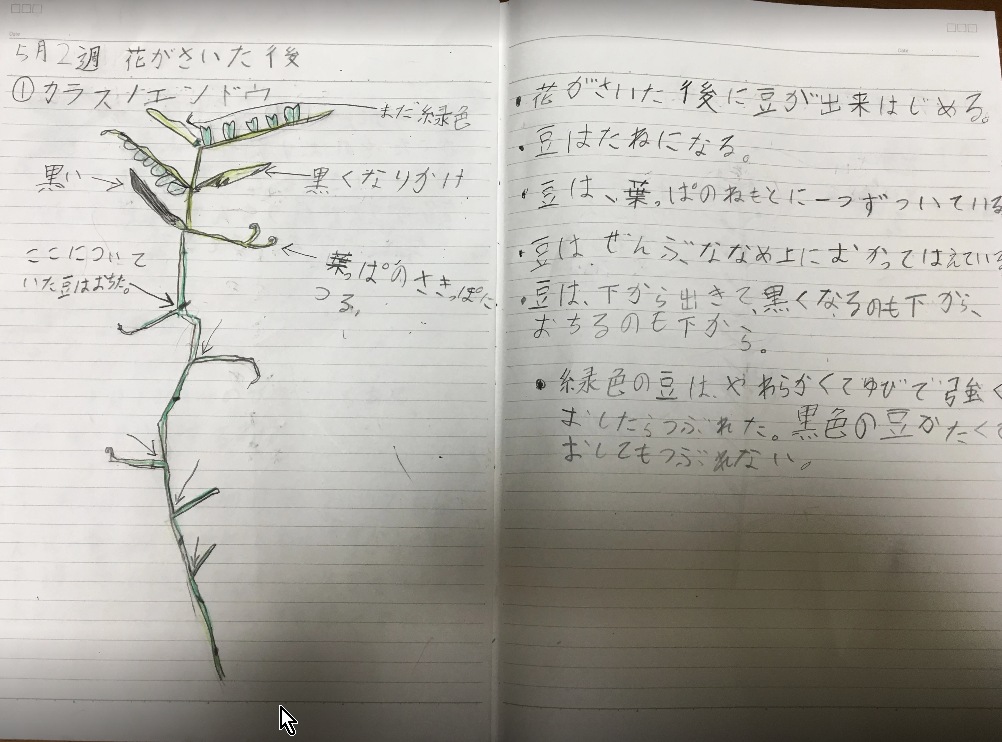 5月2週 花がさいた後
①カラスノエンドウ
まだ緑色
黒い
黒くなりかけ
ここについて
いた豆はおちた。
葉っぱのさきっぽに、
つる。
・花がさいた後に豆が出来はじめる。
・豆はたねになる。
・豆は、葉っぱのねもとに一つずつついている
・豆は、ぜんぶななめ上にむかってはえている
・豆は、下から出きて、黒くなるのも下から、
おちるのも下か
ら。
・緑色の豆は、やわらかくてゆびで強く
おしたらつぶれた。黒色の豆かたくて
おしてもつぶれない。